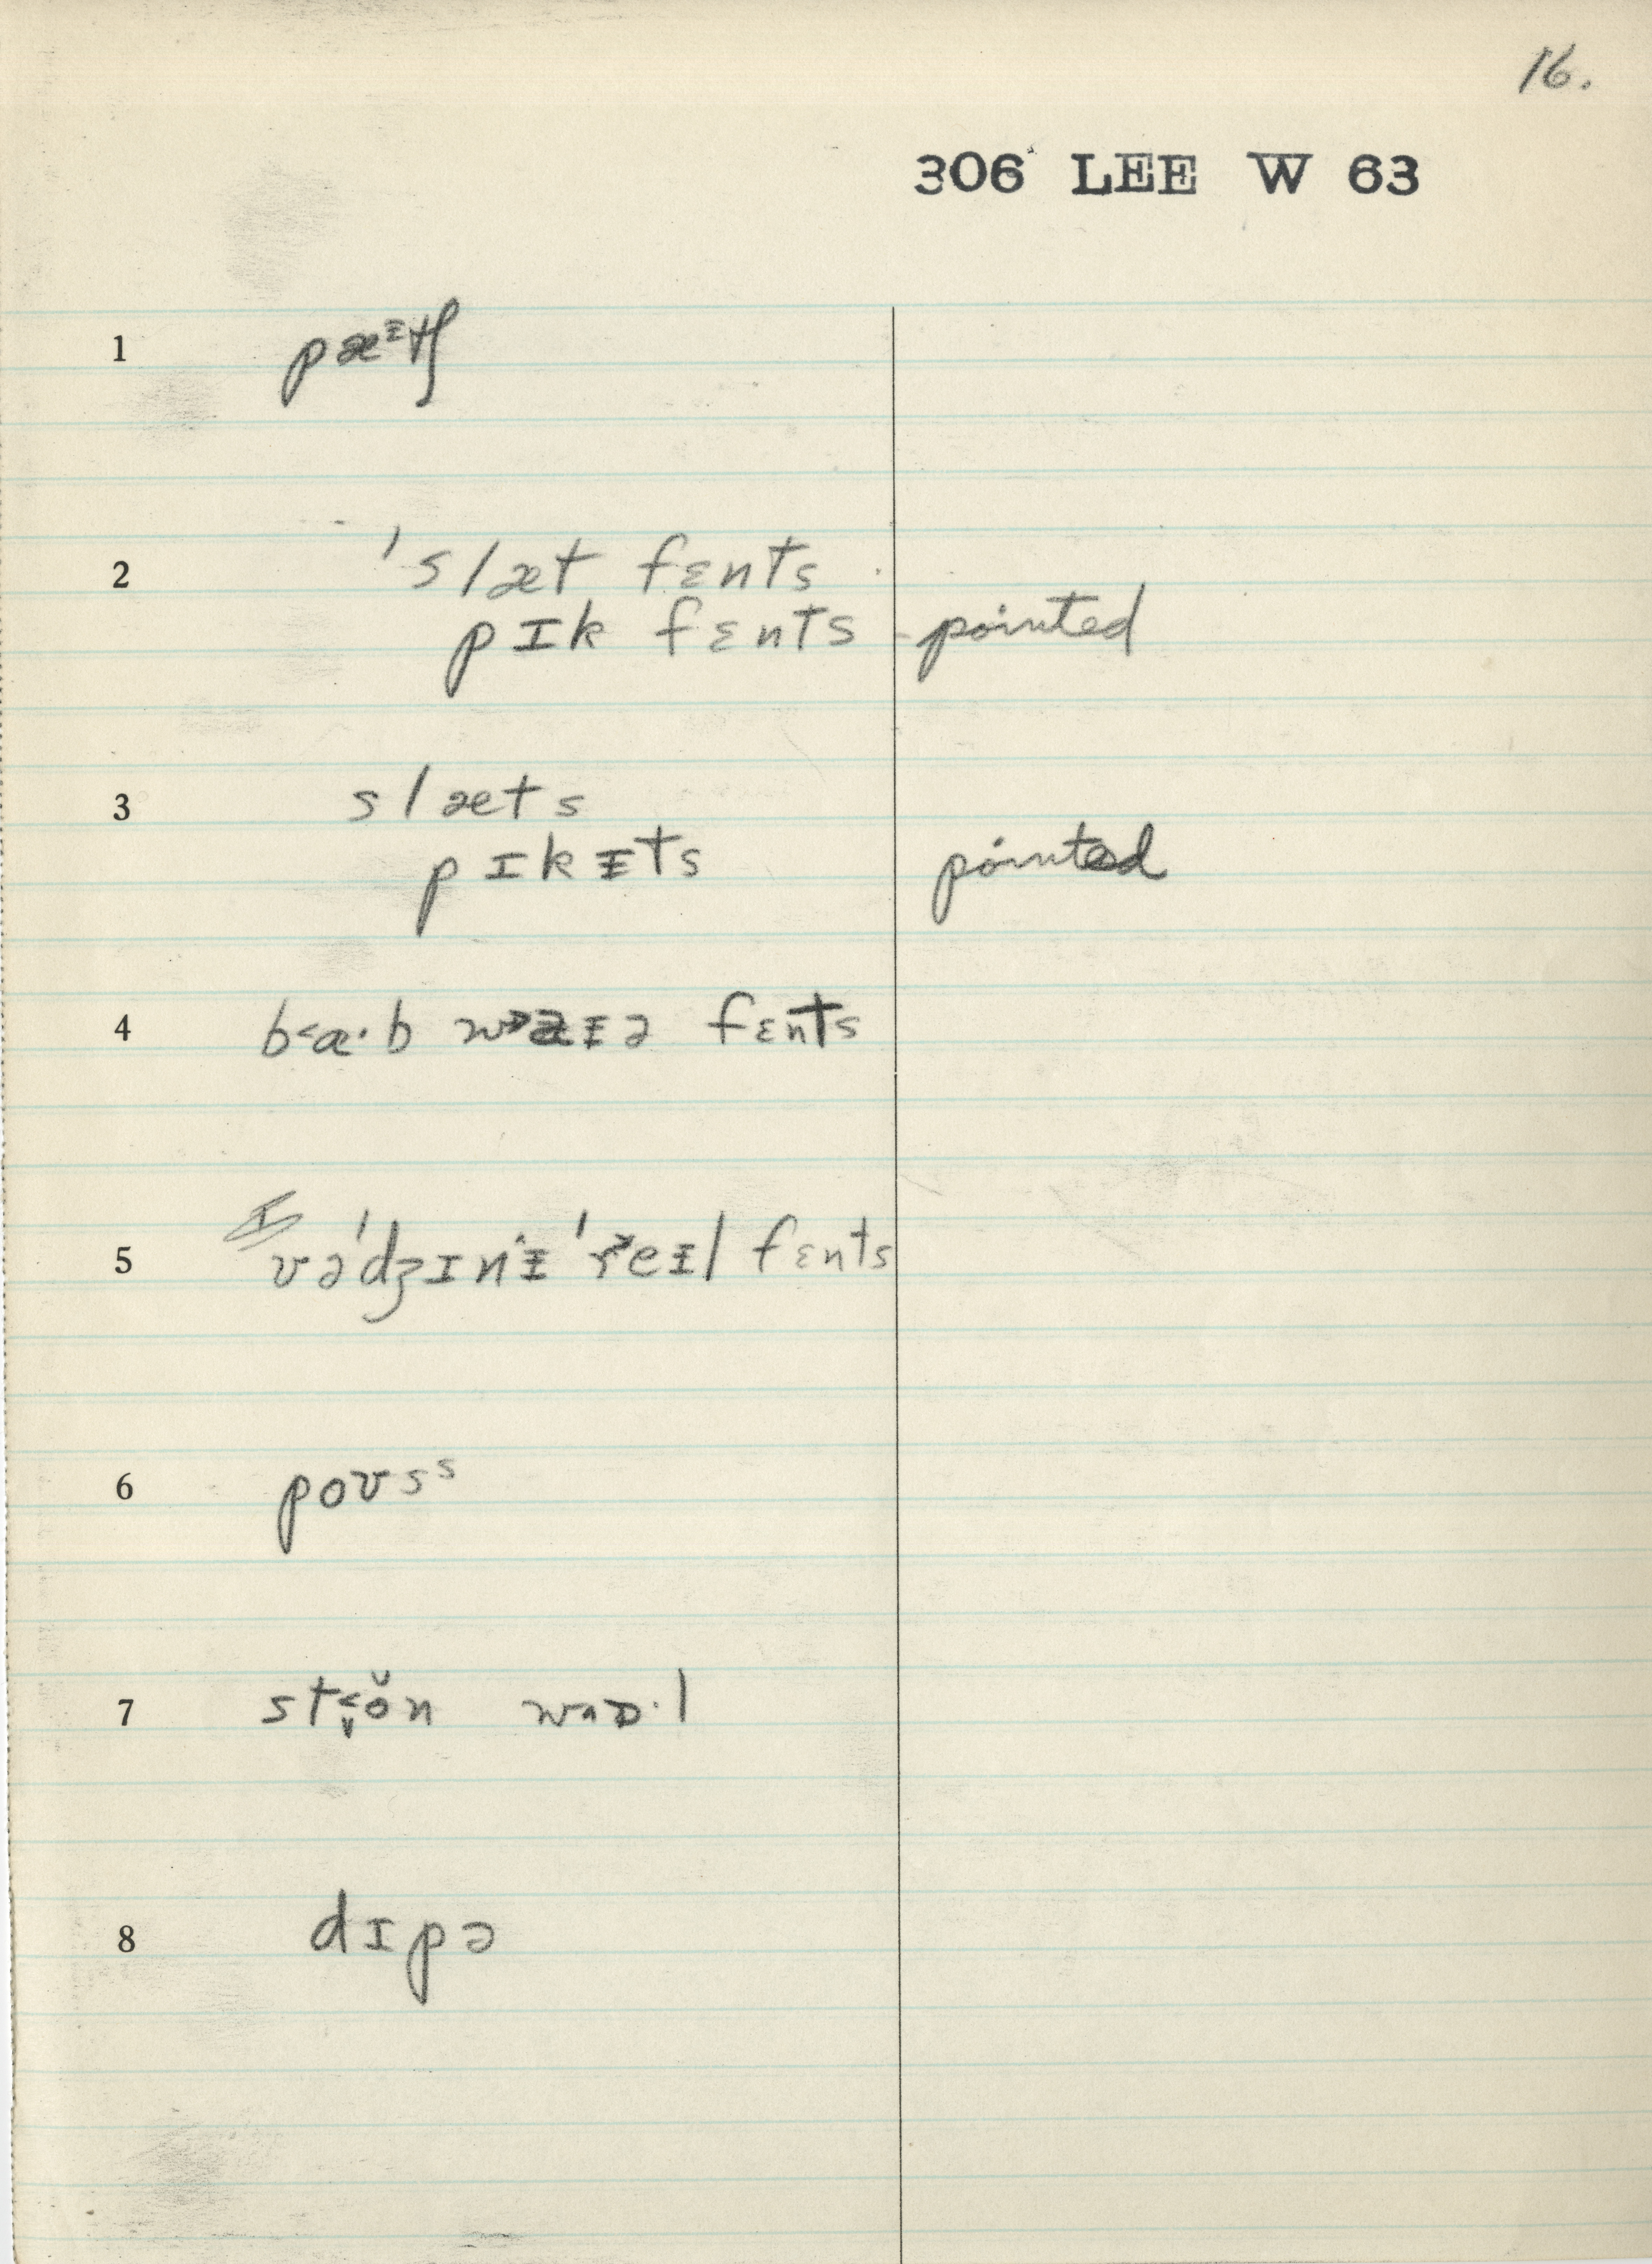 16.
306 LEE W 63
1 pæᵻtʃ
2 'slæt fɛnts
pɪk fɛnts - pointed
3 slæts
pɪkᵻts pointed
4 b˂ɑ·b w˃aᵻə fɛnts
5 və'dʒɪn^ᵻ 'r˃eᵻl fɛnts
6 poʊsˢ
7 st˂˅ŏn wɒ·l
8 dɪpə